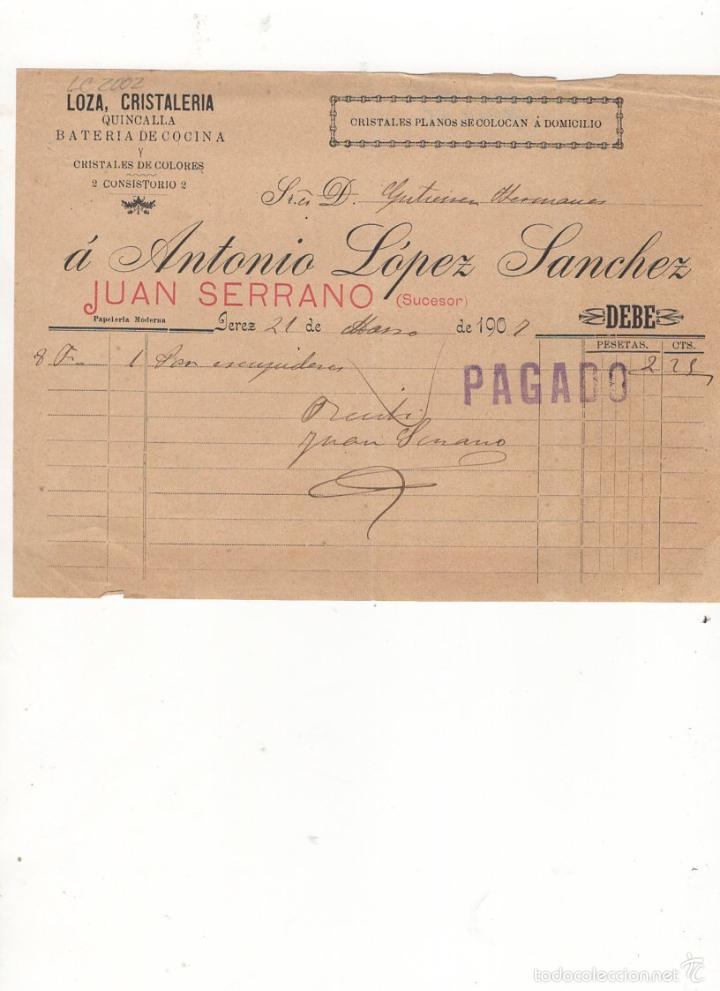 LC 2002
LOZA, CRISTALERIA
QUINCALLA
BATERIA DE COCINA
Y
CRISTALES DE COLORES
2 CONSISTORIO 2
CRISTALES PLANOS SE COLOCAN Á DOMICILIO
Sres. D. Hermanos
á Antonio López Sanchez
JUAN SERRANO (Sucesor)
Papeleria Moderna
Jerez 21 de Marzo de 190
DEBE
PESETAS. CTS.
8 1 escupideras 2 25
PAGADO
Recibí
Juan Serrano
todocoleccion.net